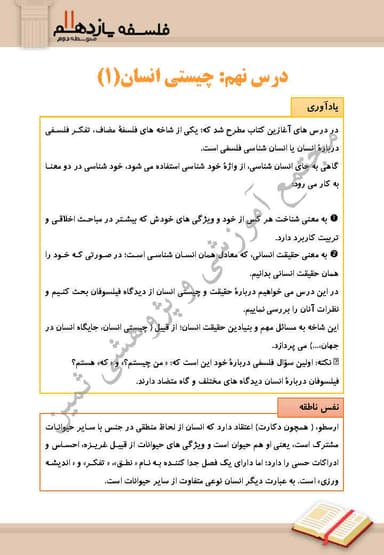 فلسفه یازدهم
متوسطه دوم
درس نهم: چیستی انسان(۱)
یادآوری
در درس های آغازین کتاب مطرح شد که: یکی از شاخه های فلسفهٔ مضاف، تفکر فلسفی
دربارهٔ انسان یا انسان شناسی فلسفی است.
گاهی به جای انسان شناسی، از واژهٔ خود شناسی استفاده می شود، خود شناسی در دو معنا
به کار می رود:
❶ به معنی شناخت هر کس از خود و ویژگی های خودش که بیشتر در مباحث اخلاقی و
تربیت کاربرد دارد.
❷ به معنی حقیقت انسانی، که معادل همان انسان شناسی است؛ در صورتی که خود را
همان حقیقت انسانی بدانیم.
در این درس می خواهیم دربارهٔ حقیقت و چیستی انسان از دیدگاه فیلسوفان بحث کنیم و
نظرات آنان را بررسی نماییم.
این شاخه به مسائل مهم و بنیادین حقیقت انسان؛ از قبیل ( چیستی انسان، جایگاه انسان در
جهان،...) می پردازد.
نکته: اولین سؤال فلسفی دربارهٔ خود این است که: « من چیستم؟» و «که» هستم؟
فیلسوفان دربارهٔ انسان دیدگاه های مختلف و گاه متضاد دارند.
نفس ناطقه
ارسطو، ( همچون دکارت) اعتقاد دارد که انسان از لحاظ منطقی در جنس با سایر حیوانات
مشترک است، یعنی او هم حیوان است و ویژگی های حیوانات از قبیل غریزه، احساس و
ادراکات حسی را دارد؛ اما دارای یک فصل جدا کننده به نام « نطق»، « تفکر» و « اندیشه
ورزی» است. به عبارت دیگر انسان نوعی متفاوت از سایر حیوانات است.
مجتمع آموزشی و پژوهشی ثمین